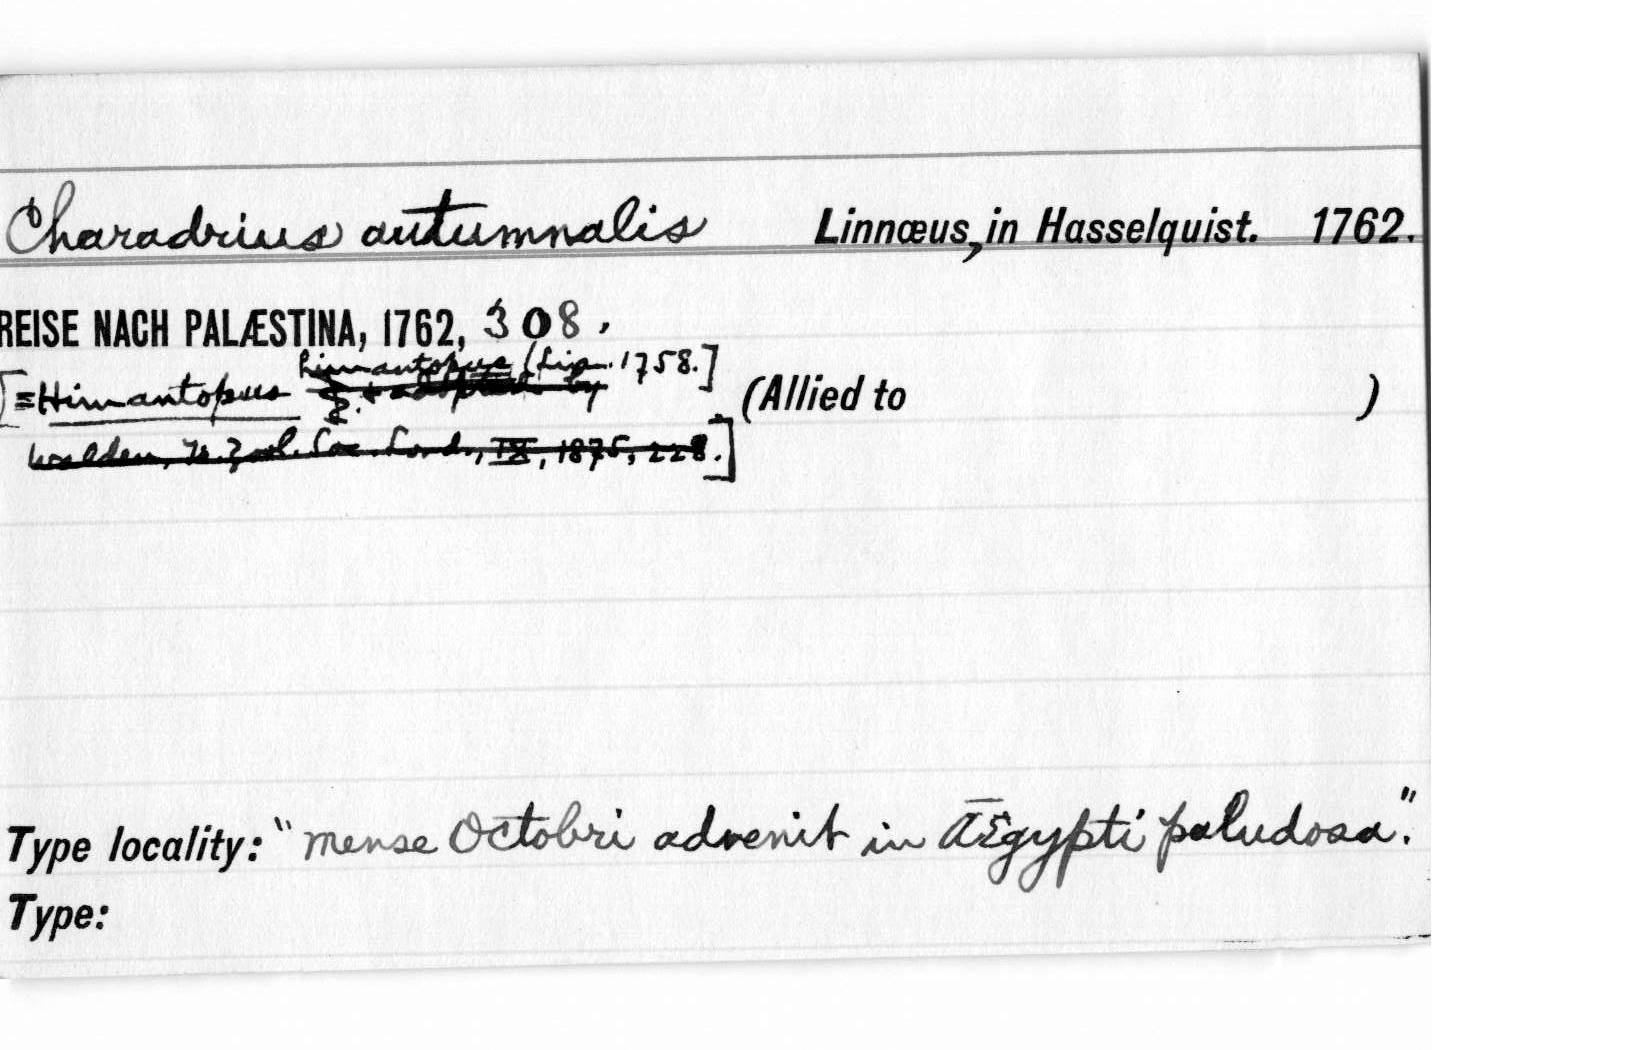 Charadrius autumnalis Linnæus, in Hasselquist. 1762.
REISE NACH PALÆSTINA, 1762, 308.
himantopus (Lin. 1758.]
[=Himantopus & + adopted by (Allied to )
Walden, Tr. Zool. Soc. Lond., IX, 1875, 228.]
Type locality: "mense Octobri advenit in Ægypti paludosa".
Type: